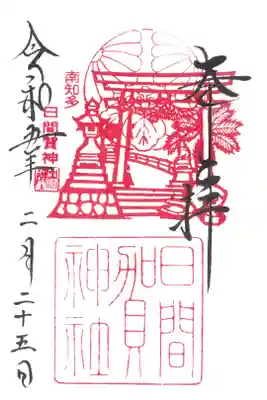 奉拝
南知多
日間賀神社
日間
加賀
神社
令和五年
二月二十五日